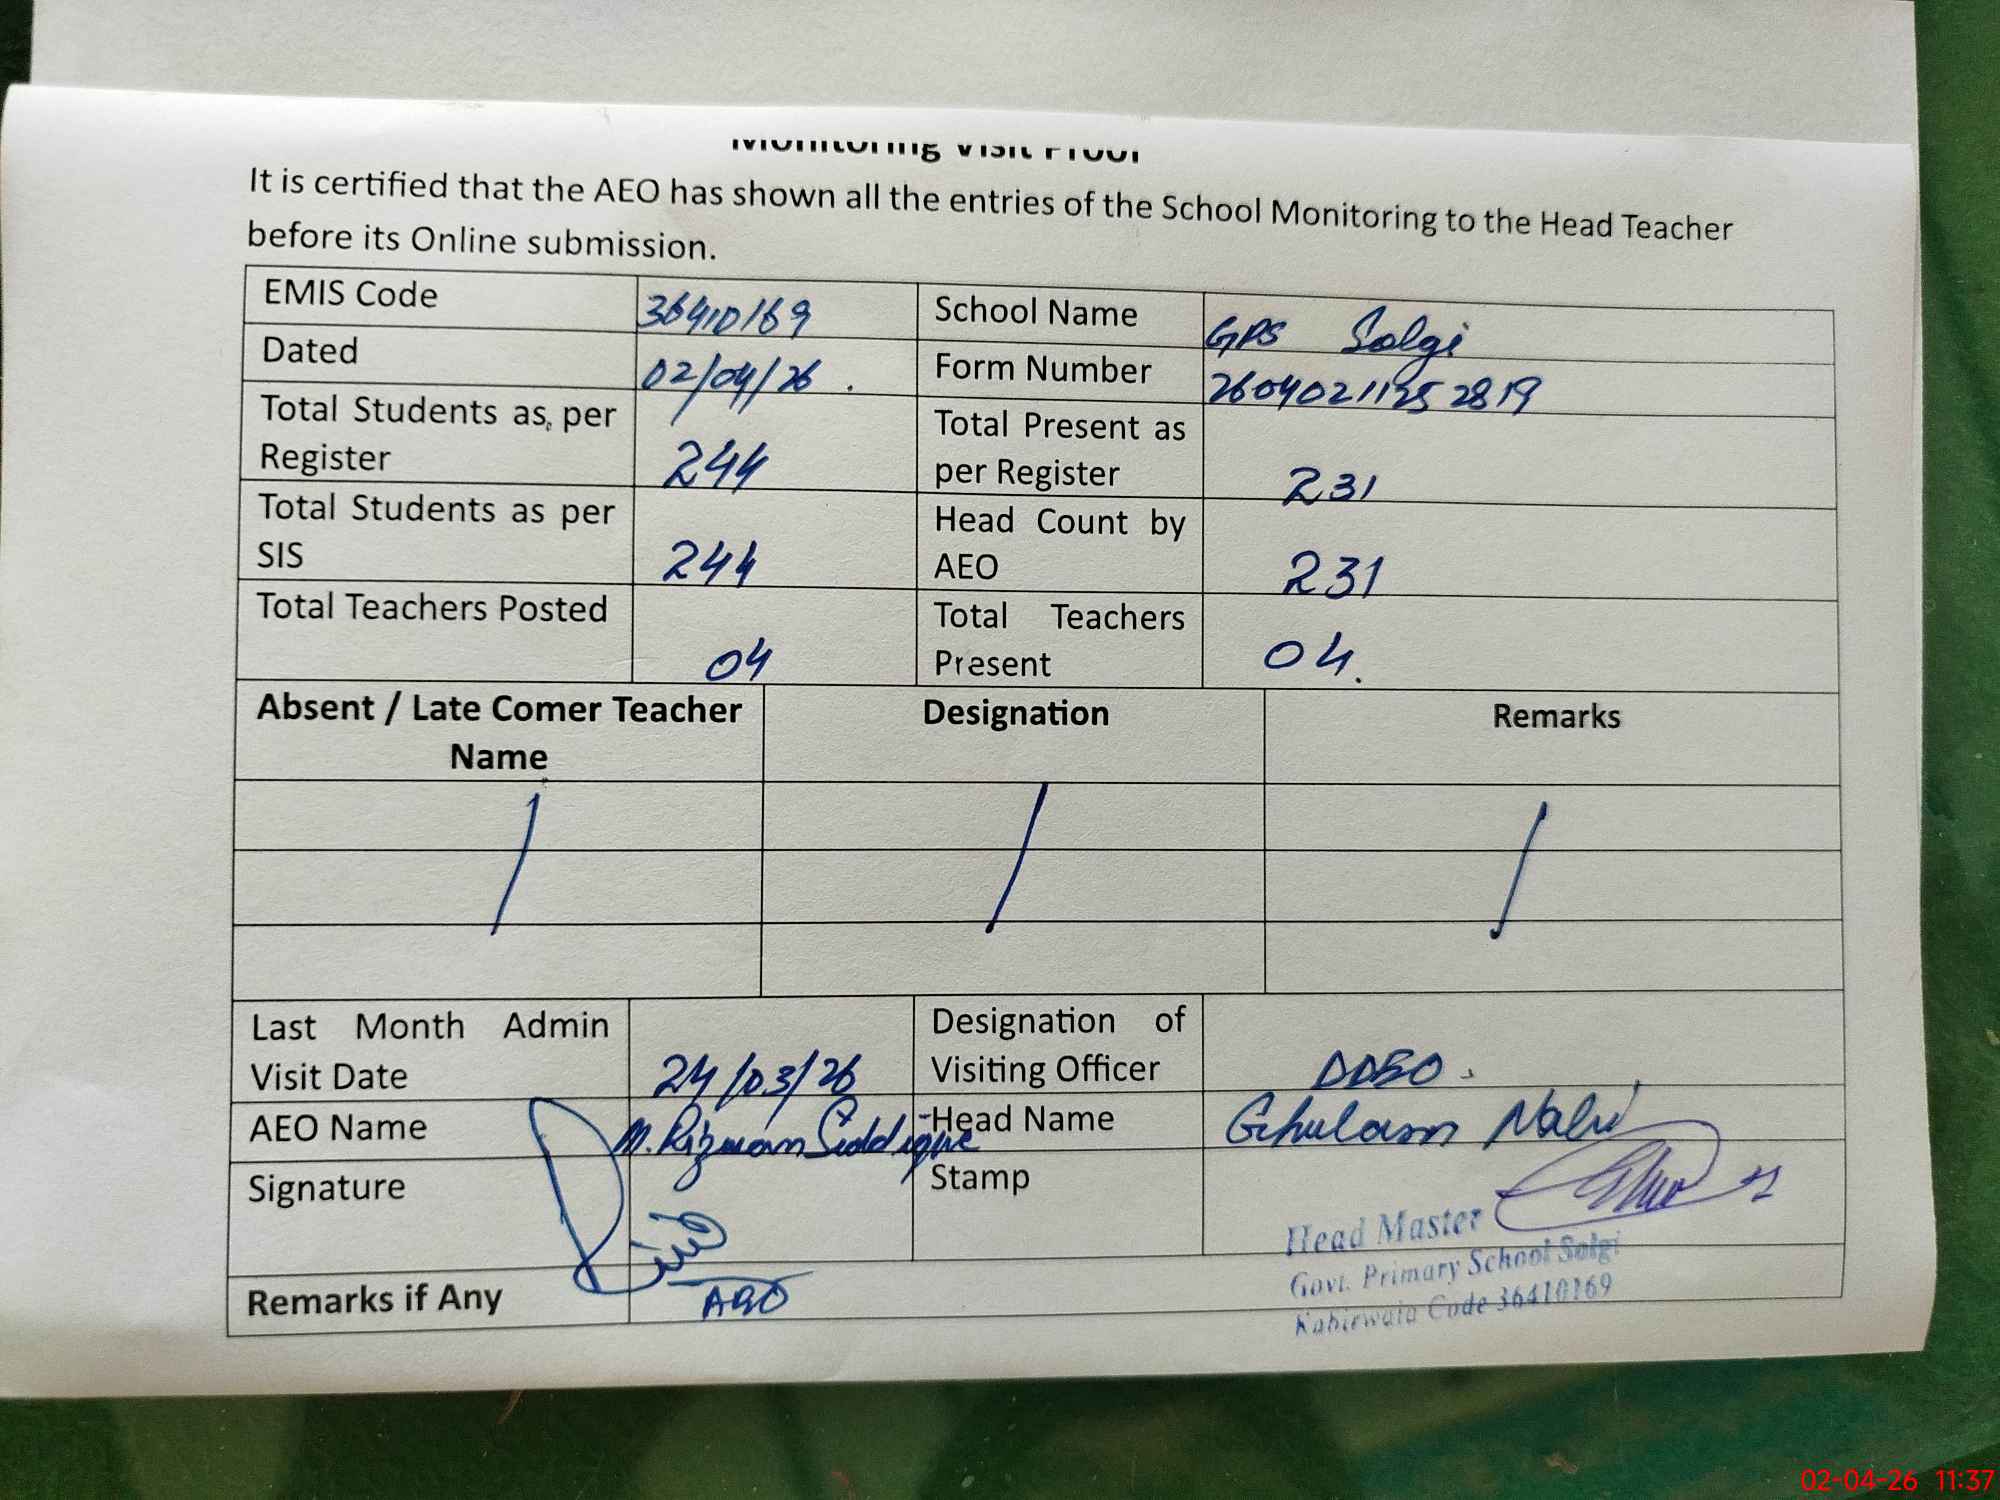 Monitoring Visit Proof
It is certified that the AEO has shown all the entries of the School Monitoring to the Head Teacher
before its Online submission.
EMIS Code 36410169 School Name GPS Solgi
Dated 02/04/26 . Form Number 2604021125 2819
Total Students as per Register 244 Total Present as per Register 231
Total Students as per SIS 244 Head Count by AEO 231
Total Teachers Posted 04 Total Teachers Present 04.
Absent / Late Comer Teacher Name Designation Remarks
/ / /
Last Month Admin Visit Date 24/03/26 Designation of Visiting Officer DDEO .
AEO Name M. Rizwan Siddique Head Name Ghulam Nabi
Signature Stamp
AEO
Head Master
Govt. Primary School Solgi
Kabirwala Code 36410169
Remarks if Any
02-04-26 11:37